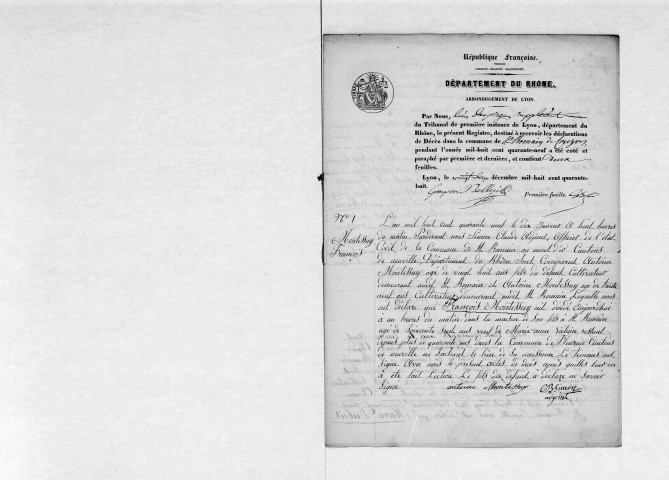 République Française.
LIBERTÉ, ÉGALITÉ, FRATERNITÉ.
DÉPARTEMENT DU RHONE.
ARRONDISSEMENT DE LYON.
Par Nous,
du Tribunal de première instance de Lyon, département du
Rhône, le présent Registre, destiné à recevoir les déclarations
de Décès dans la commune de St Romain de Couzon
pendant l'année mil-huit cent quarante-neuf a été coté et
paraphé par première et dernière, et contient deux
feuilles.
Lyon, le vingt décembre mil-huit cent quarante-
huit.
Première feuille.
No 1
Montessuy
François
L'an mil huit cent quarante neuf le dix Janvier à huit heures
du matin Pardevant nous Simon Claude Adjoint, Officier de l'état
Civil de la Commune de St Romain au mont d'or Canton
de neuville Département du Rhône Sont Comparus Antoine
Montessuy agé de vingt huit ans fils du défunt Cultivateur
demeurant audit St Romain et Antoine Montessuy agé de trente
neuf ans Cultivateur demeurant audit St Romain Lesquels nous
ont déclaré que François Montessuy est décédé aujourd'hui
à un heures du matin dans la maison de son fils à St Romain
agé de Soixante ans veuf de Marie
depuis plus de quarante ans dans la Commune de Fleurieu Canton
de neuville ne sachant le lieu de sa naissance Le temoins ont
Signé Avec nous le present actes de décès après quil leur en
a été fait Lecture Le fils du défunt a déclaré ne savoir
Signé
antoine Montessuy
Simon
adjoint